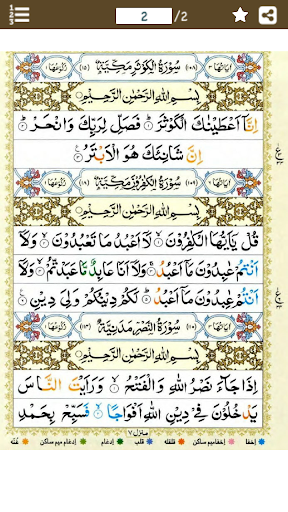 2 /2
اٰيَاتُهَا ٣ (١٠٨) سُوْرَةُ الْكَوْثَرِ مَكِّيَّةٌ (١٥) رُكُوْعُهَا ١
بِسْمِ اللّٰهِ الرَّحْمٰنِ الرَّحِيْمِ
اِنَّاۤ اَعْطَيْنٰكَ الْكَوْثَرَ ۞ فَصَلِّ لِرَبِّكَ وَانْحَرْ ۞
اِنَّ شَانِئَكَ هُوَ الْاَبْتَرُ ۞
اٰيَاتُهَا ٦ (١٠٩) سُوْرَةُ الْكٰفِرُوْنَ مَكِّيَّةٌ (١٨) رُكُوْعُهَا ١
بِسْمِ اللّٰهِ الرَّحْمٰنِ الرَّحِيْمِ
قُلْ يٰۤاَيُّهَا الْكٰفِرُوْنَ ۞ لَاۤ اَعْبُدُ مَا تَعْبُدُوْنَ ۞ وَلَاۤ
اَنْتُمْ عٰبِدُوْنَ مَاۤ اَعْبُدُ ۞ وَلَاۤ اَنَا عَابِدٌ مَّا عَبَدْتُّمْ ۞ وَلَاۤ
اَنْتُمْ عٰبِدُوْنَ مَاۤ اَعْبُدُ ۞ لَكُمْ دِيْنُكُمْ وَلِيَ دِيْنِ ۞
اٰيَاتُهَا ٣ (١١٠) سُوْرَةُ النَّصْرِ مَدَنِيَّةٌ (١١٤) رُكُوْعُهَا ١
بِسْمِ اللّٰهِ الرَّحْمٰنِ الرَّحِيْمِ
اِذَا جَآءَ نَصْرُ اللّٰهِ وَالْفَتْحُ ۞ وَرَاَيْتَ النَّاسَ
يَدْخُلُوْنَ فِيْ دِيْنِ اللّٰهِ اَفْوَاجًا ۞ فَسَبِّحْ بِحَمْدِ
منزل ٧
اخفا اخفا ميم ساكن قلقله قلب ادغام ادغام ميم ساكن غنّه